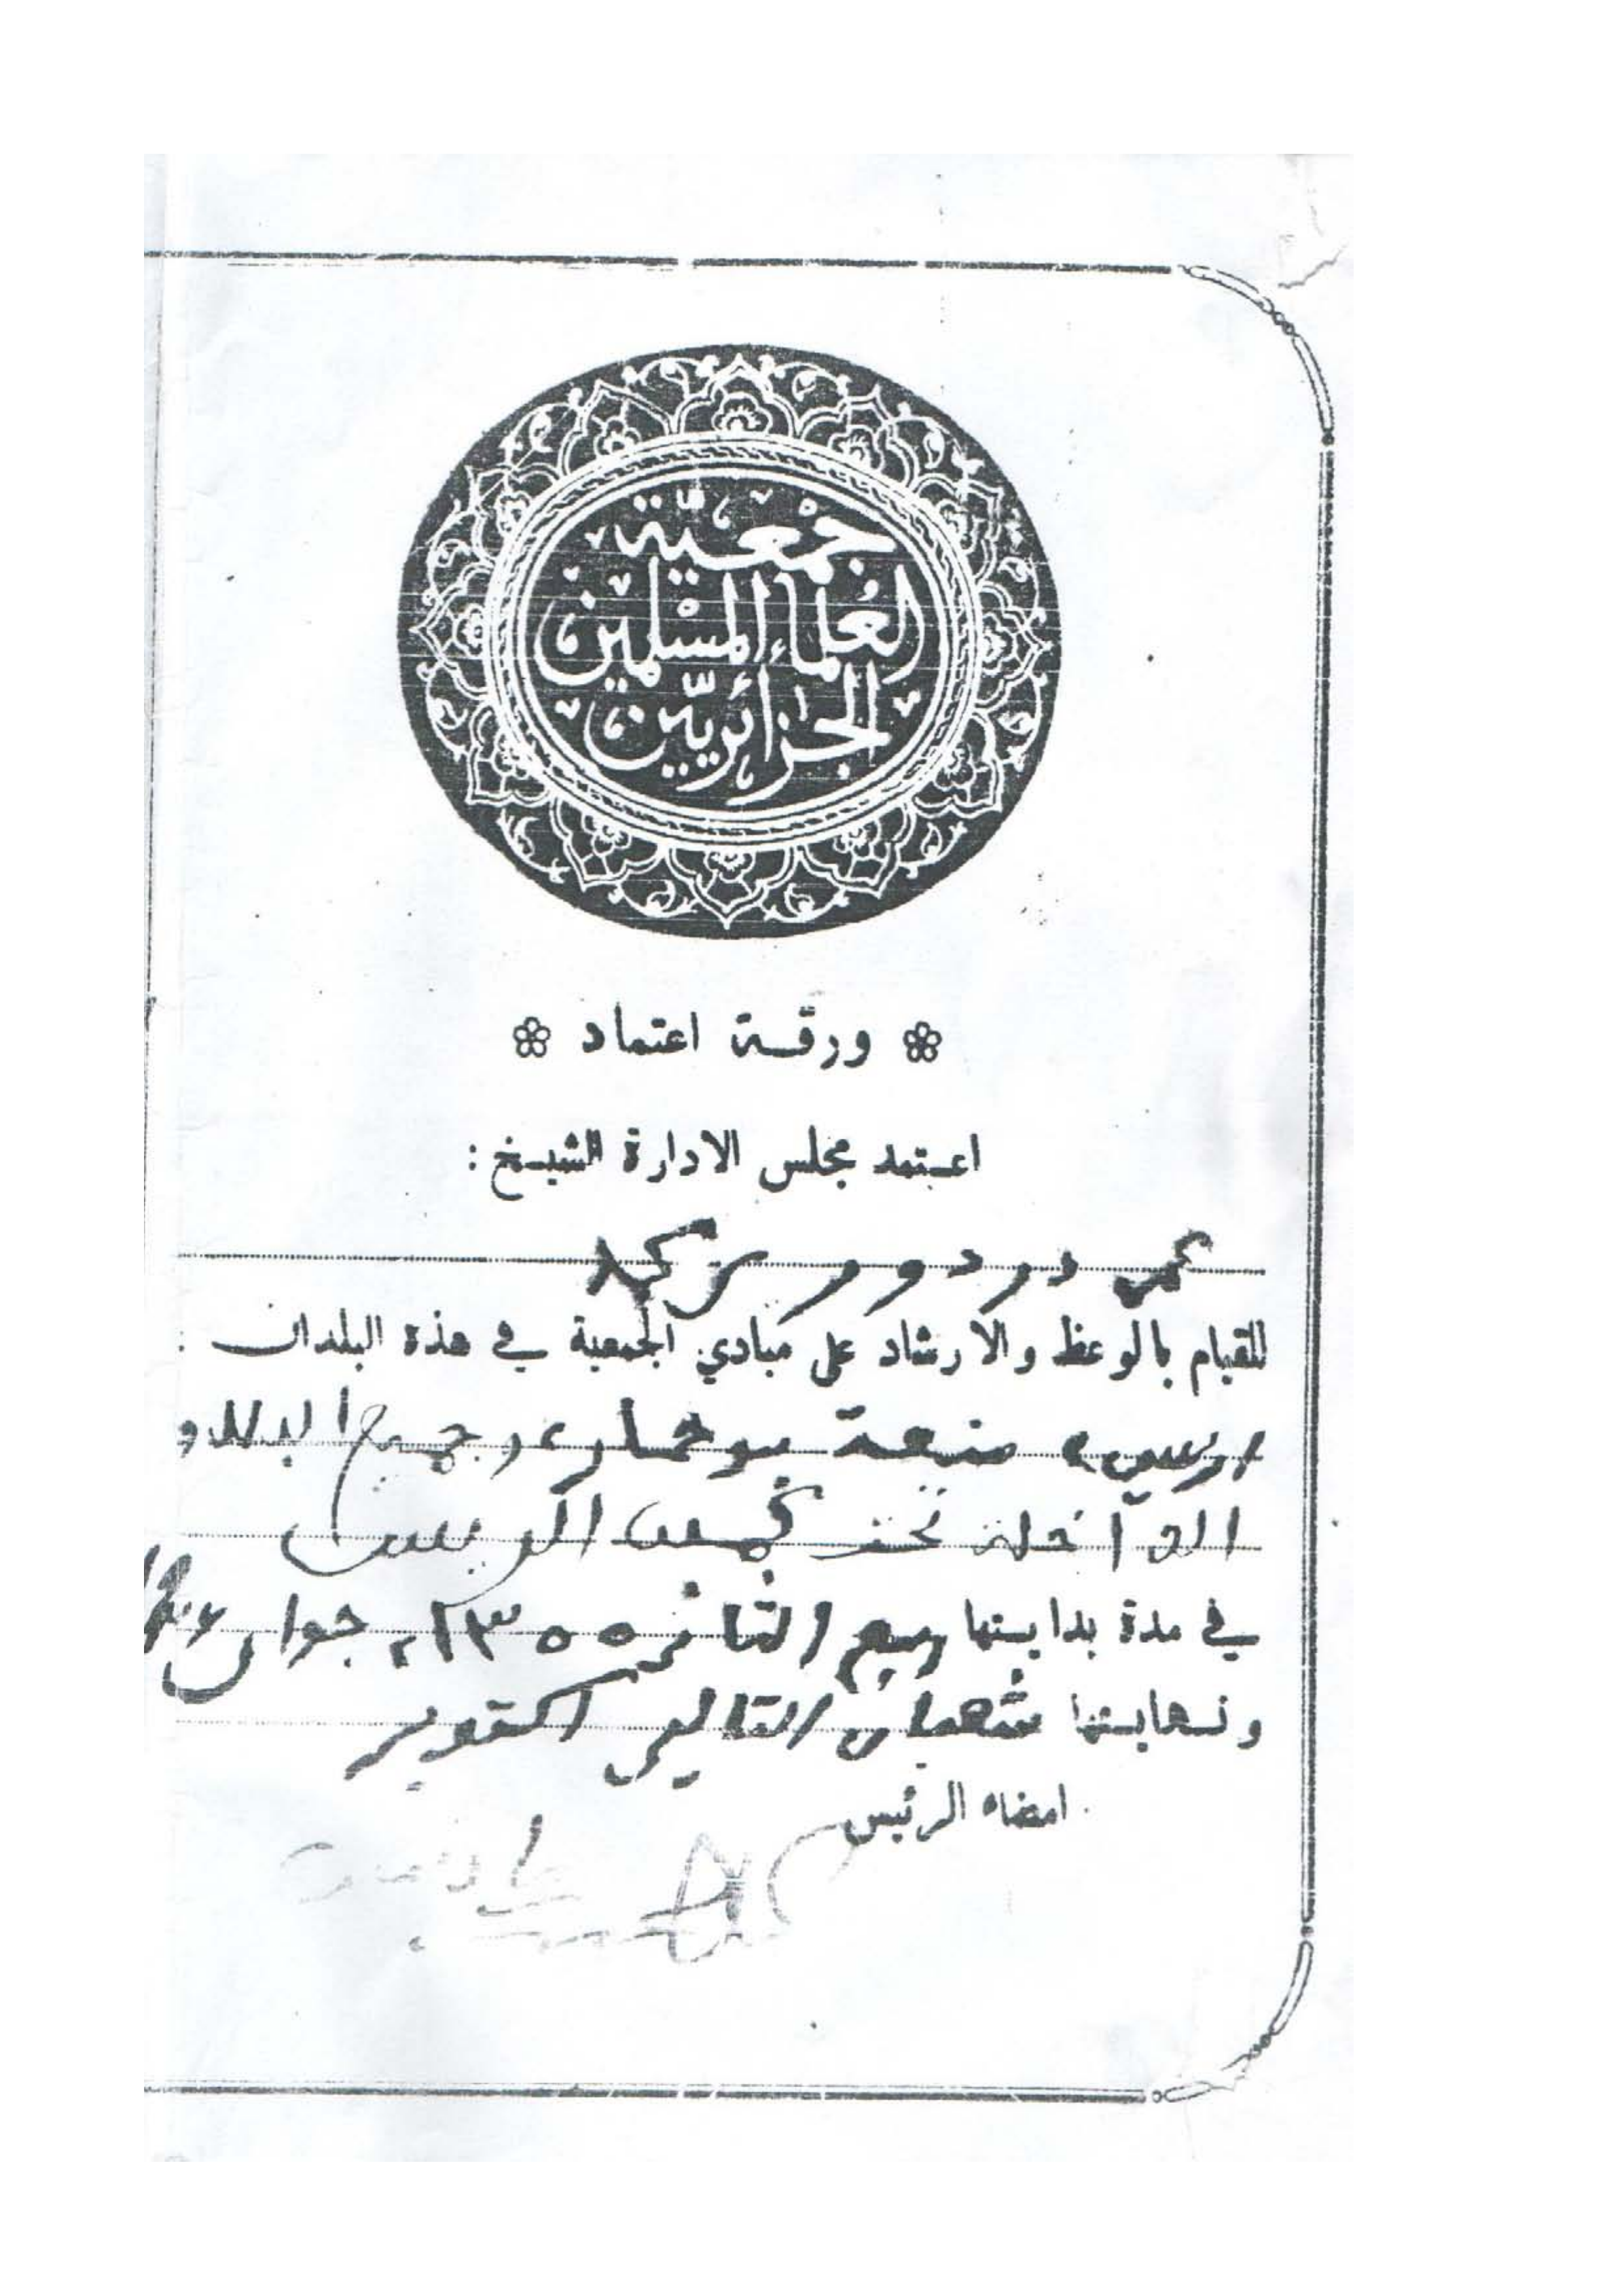 جمعية
العلماء المسلمين
الجزائريين
ورقة اعتماد
اعتمد مجلس الادارة الشيخ :
عمر دردور
للقيام بالوعظ والارشاد على مبادي الجمعية في هذه البلدان :
منعة بوحمار وجميع
في مدة بدايتها ربيع الثاني ١٣٥٥ جوان
ونهايتها شعبان التالي اكتوبر
امضاء الرئيس